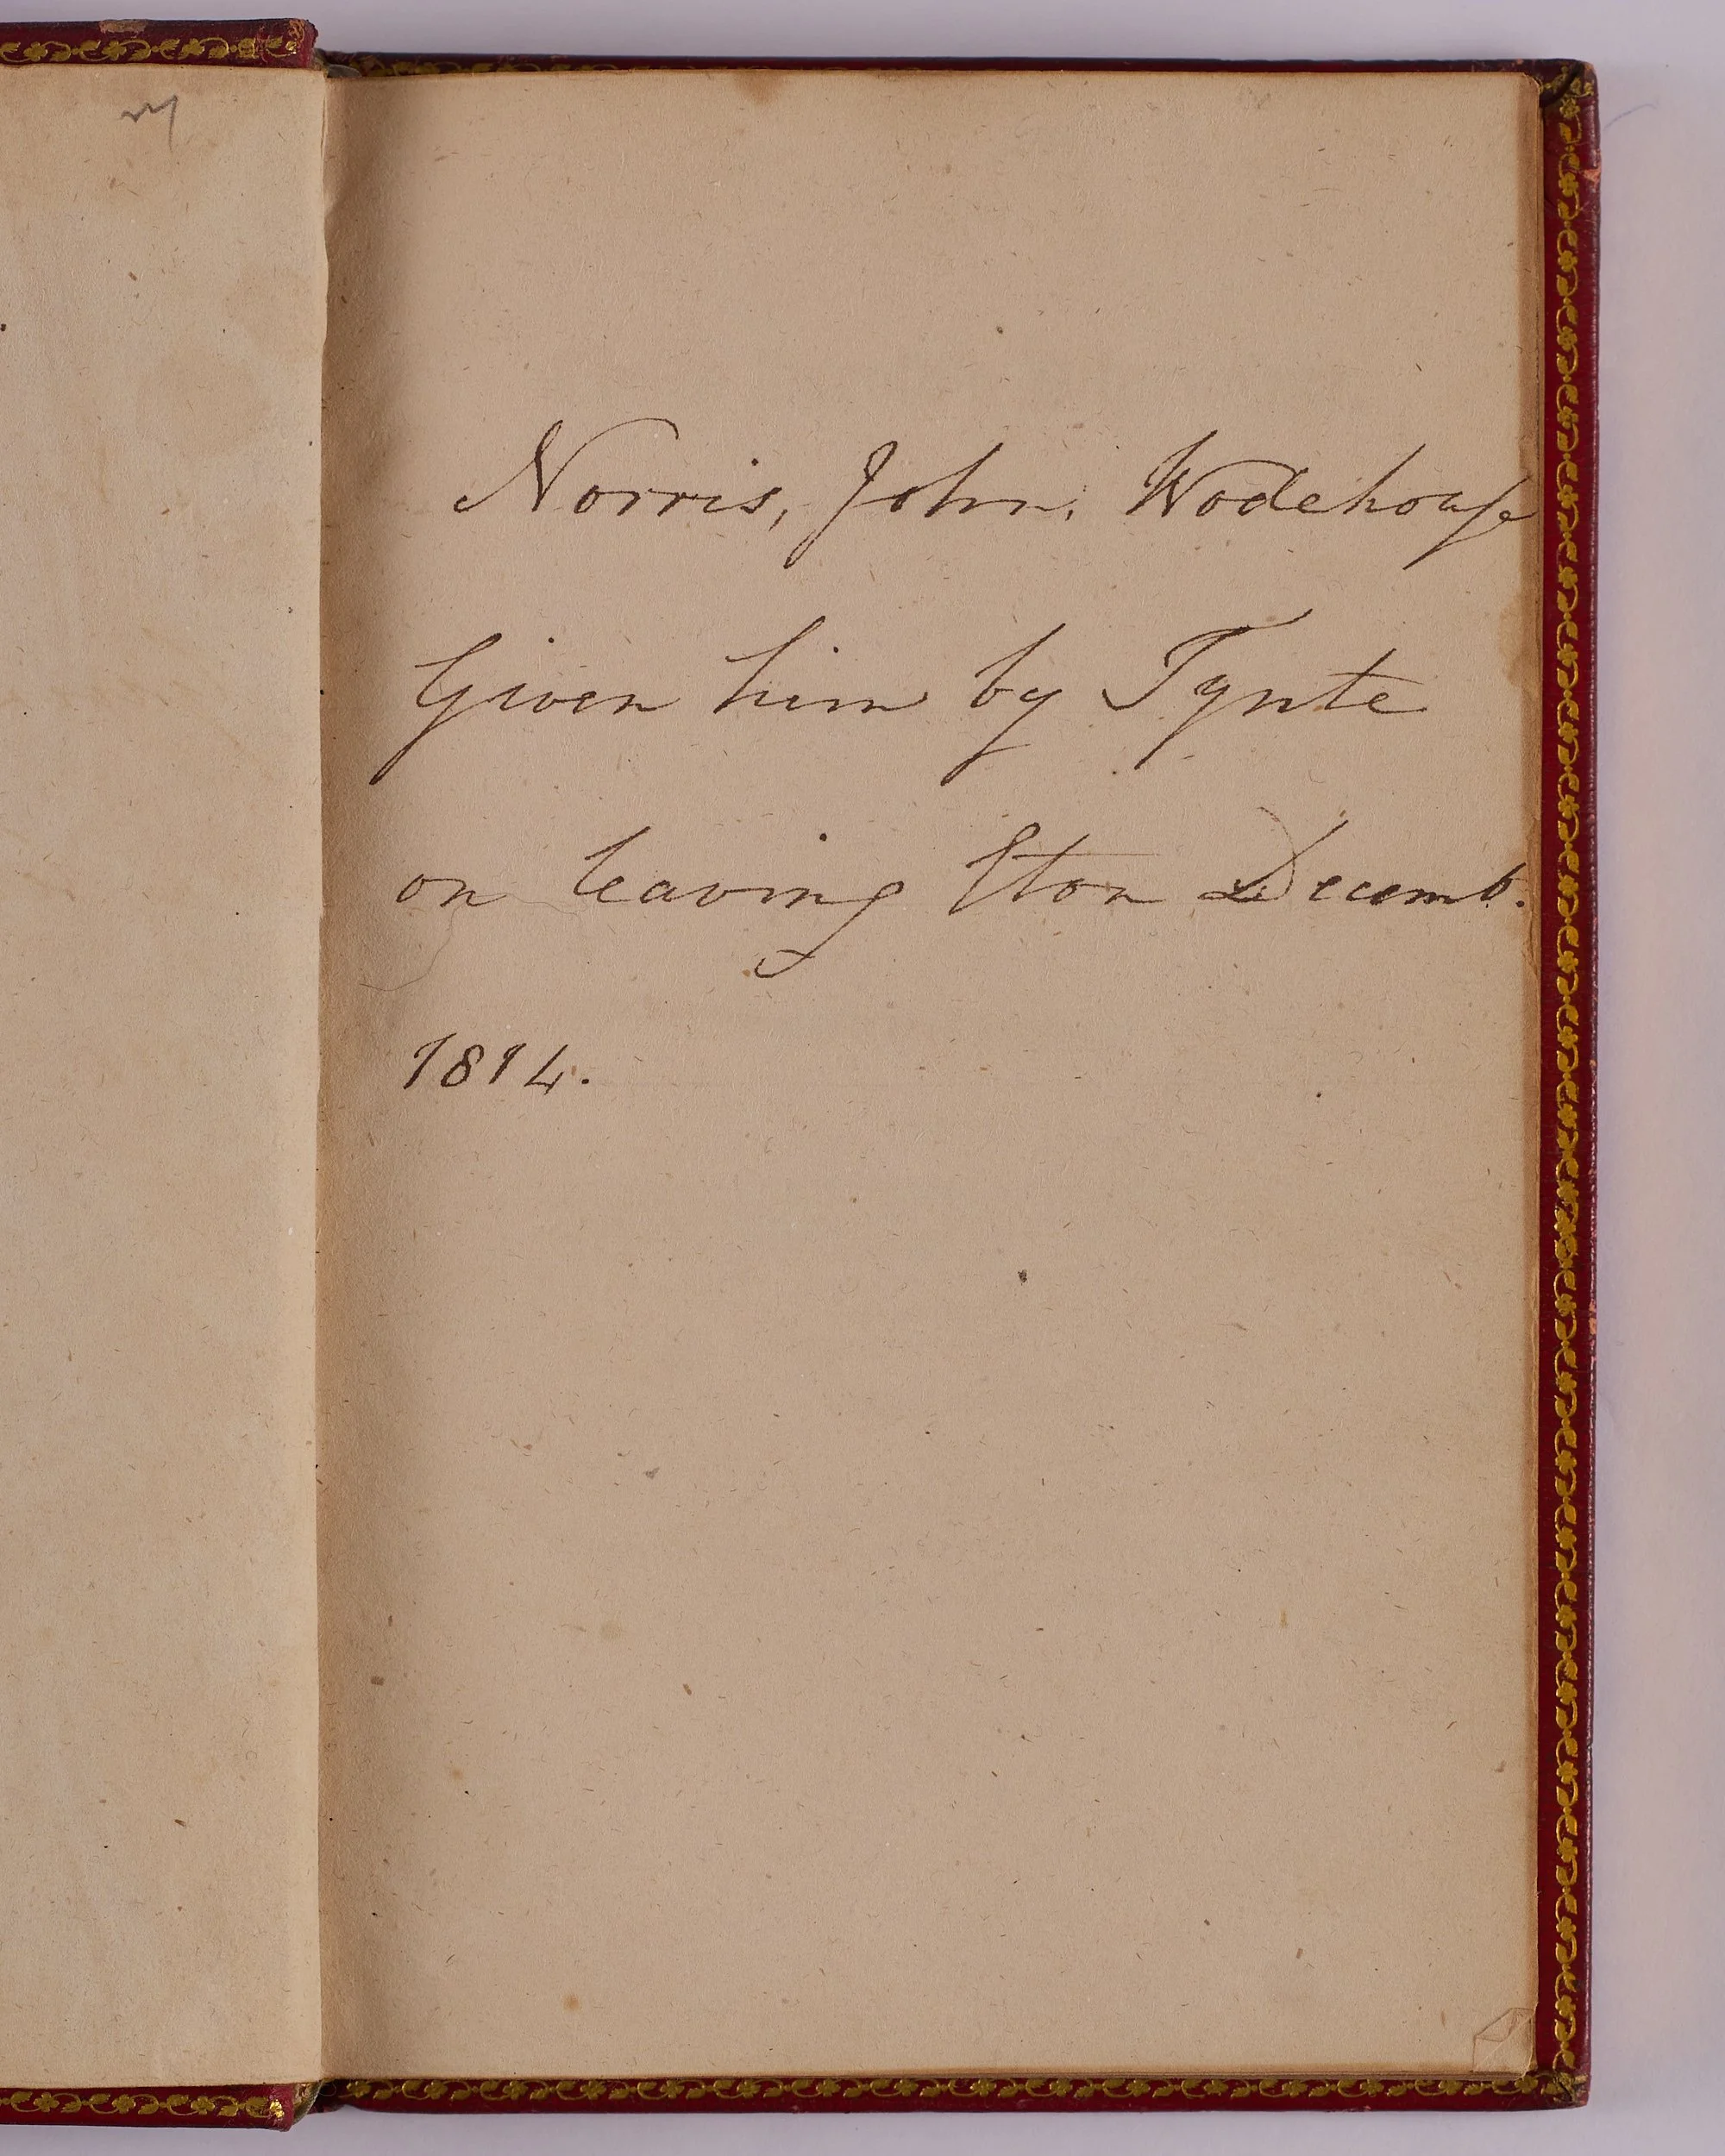 Norris, John, Wodehouse
Given him by Tynte
on leaving Eton Decemb.
1814.